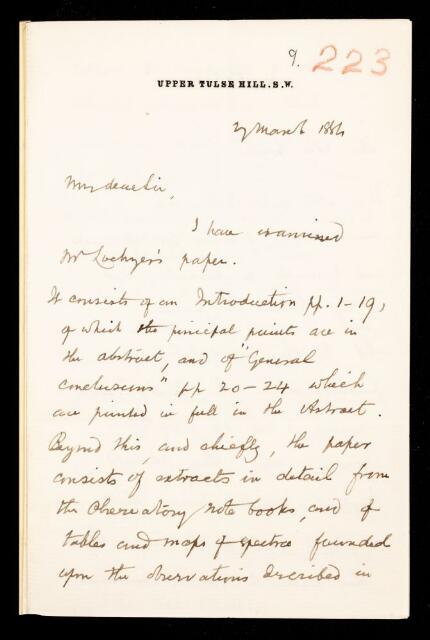 9. 223
UPPER TULSE HILL. S.W.
March 1886
My dear Sir,
I have examined
Mr Lockyer's paper.
It consists of an Introduction pp. 1-19,
of which the principal points are in
the abstract, and of "General
conclusions" pp 20-24 which
are printed in full in the Abstract.
Beyond this, and chiefly, the paper
consists of extracts in detail from
the Observatory note books, and of
tables and maps of spectra founded
upon the observations described in